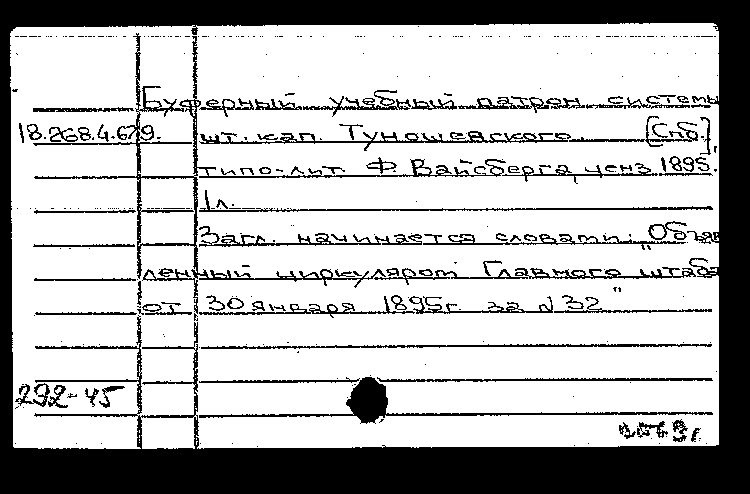 Буферный учебный патрон системы
18.268.4.679. шт. кап. Туношевского. [Спб.],
типо-лит. Ф Вайсберга, ценз 1895.
1л.
Загл. начинается словами: "Объяв
ленный циркуляром Главного штаба
от 30 января 1895г. за N 32"
292-45